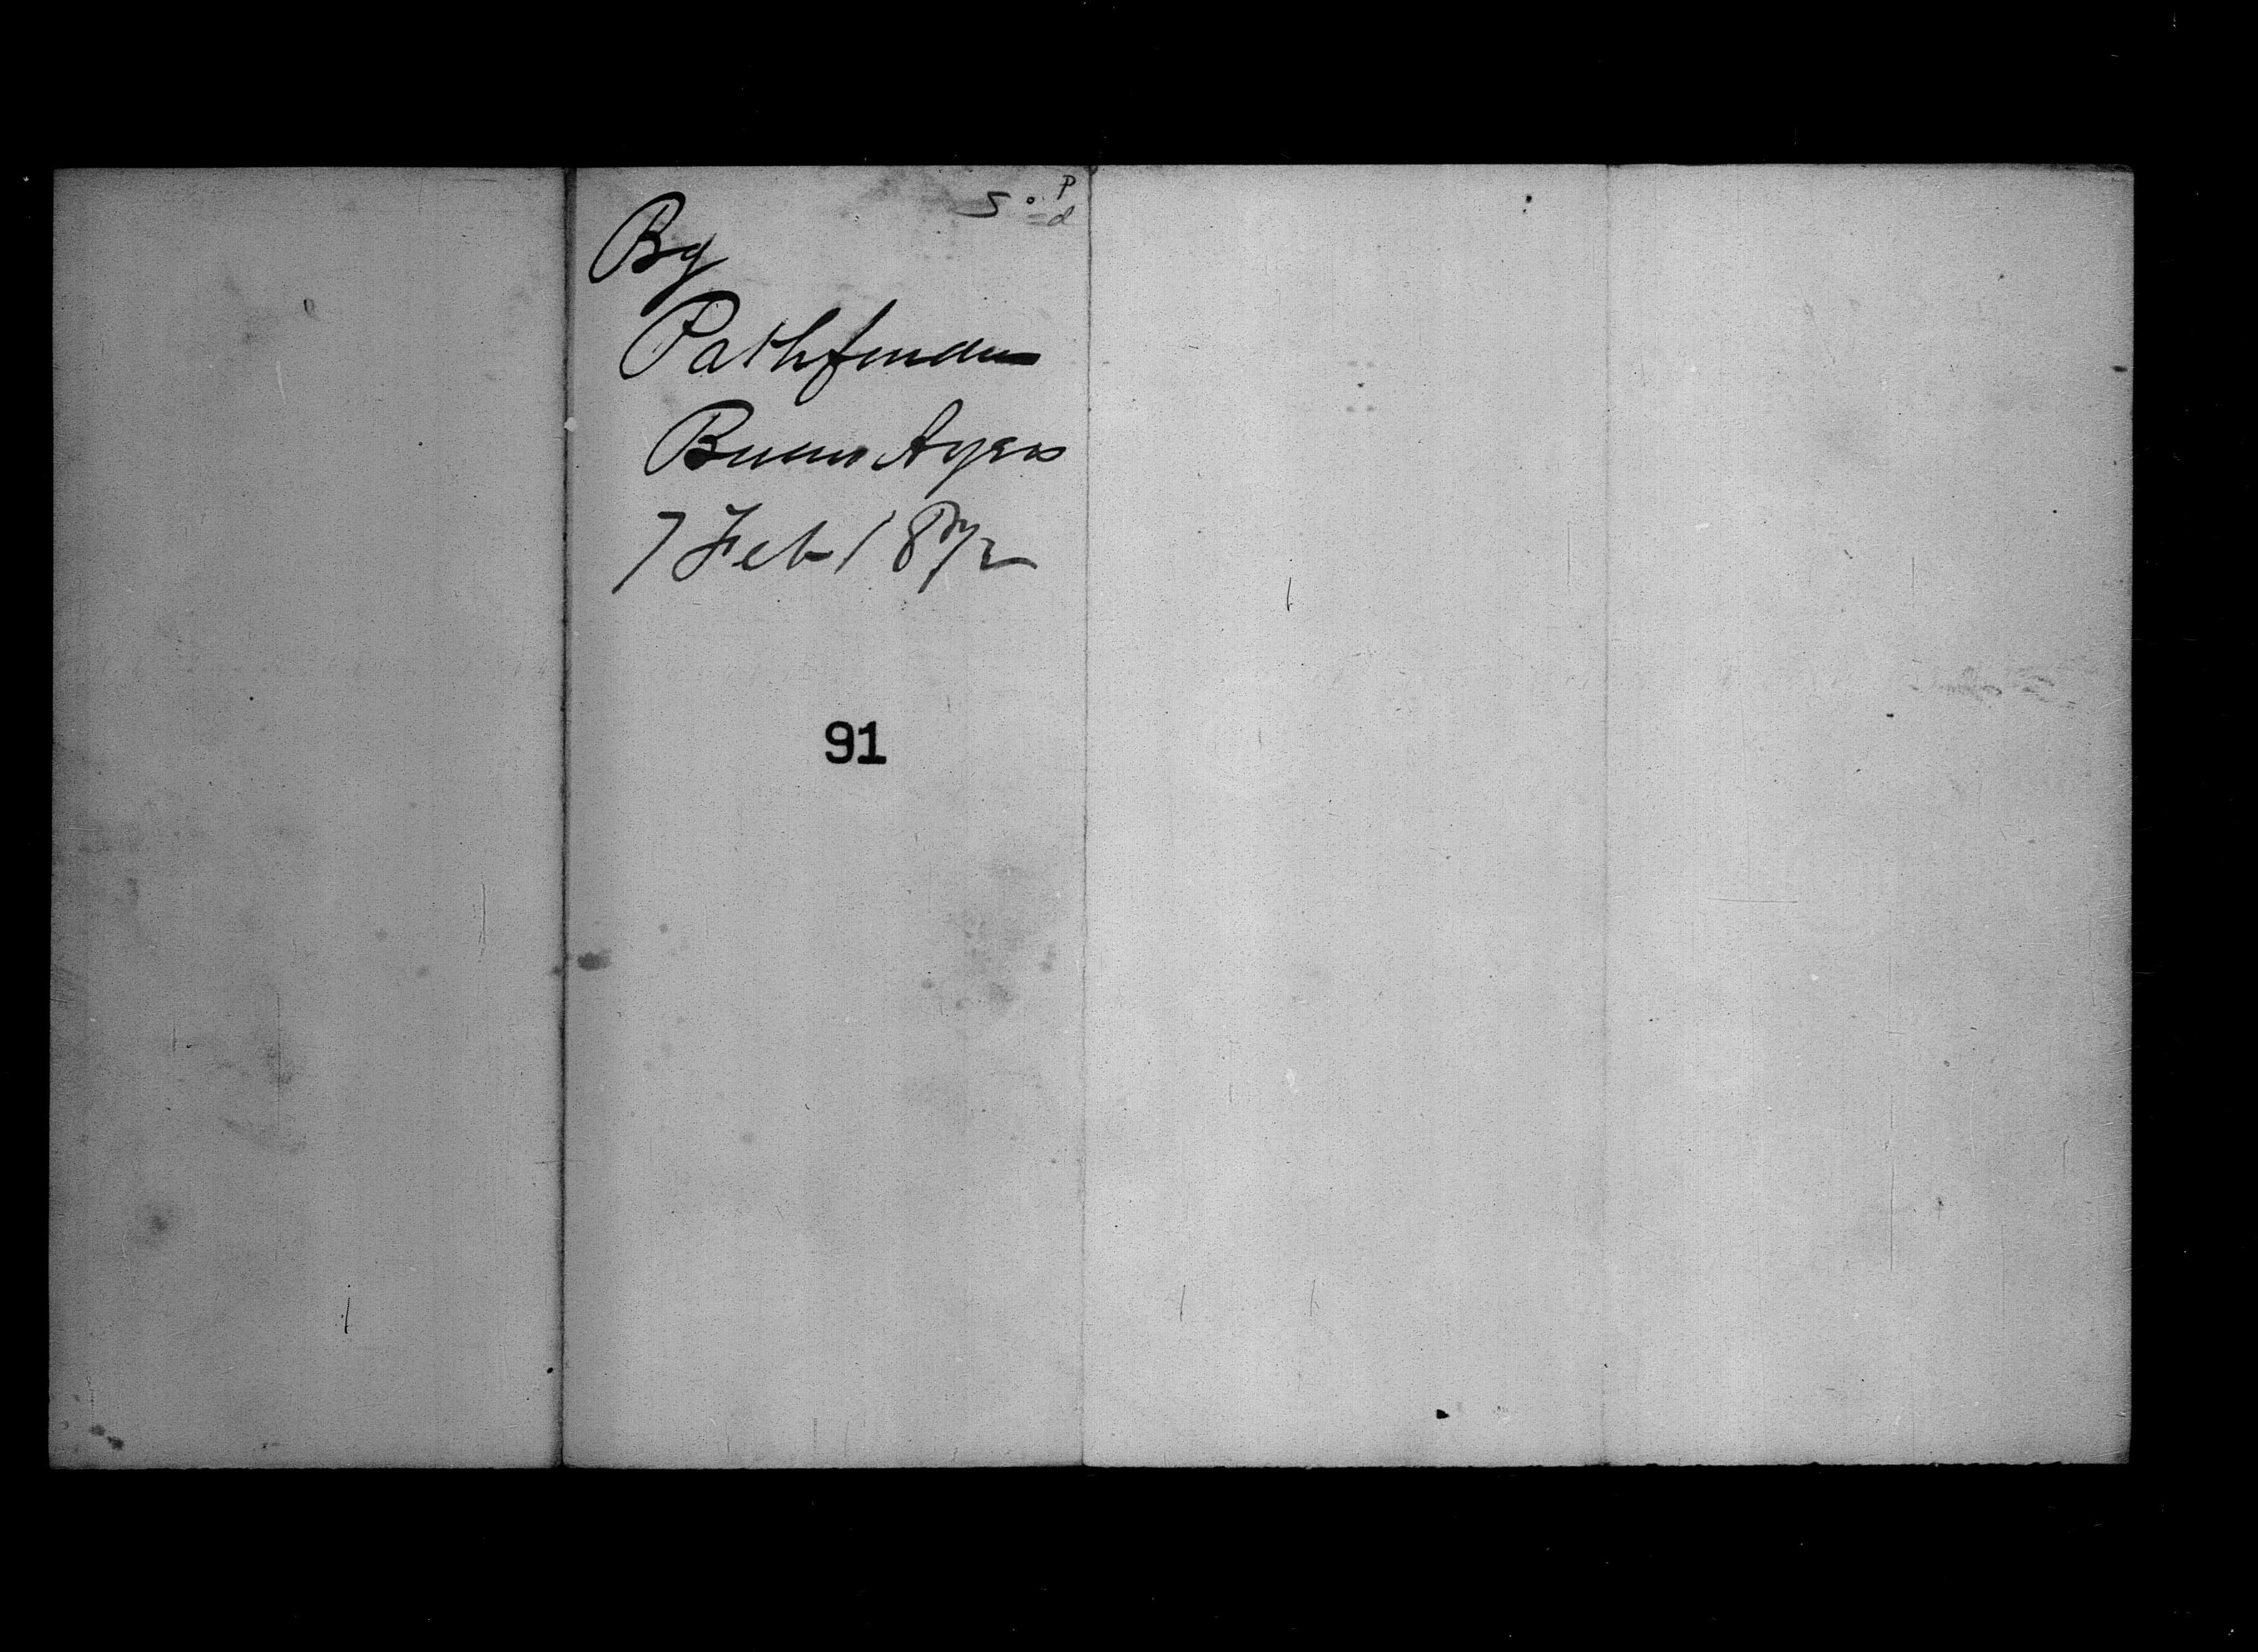 Bg
Pathfinder
Buenos Ayres
7 Feb 1872
91